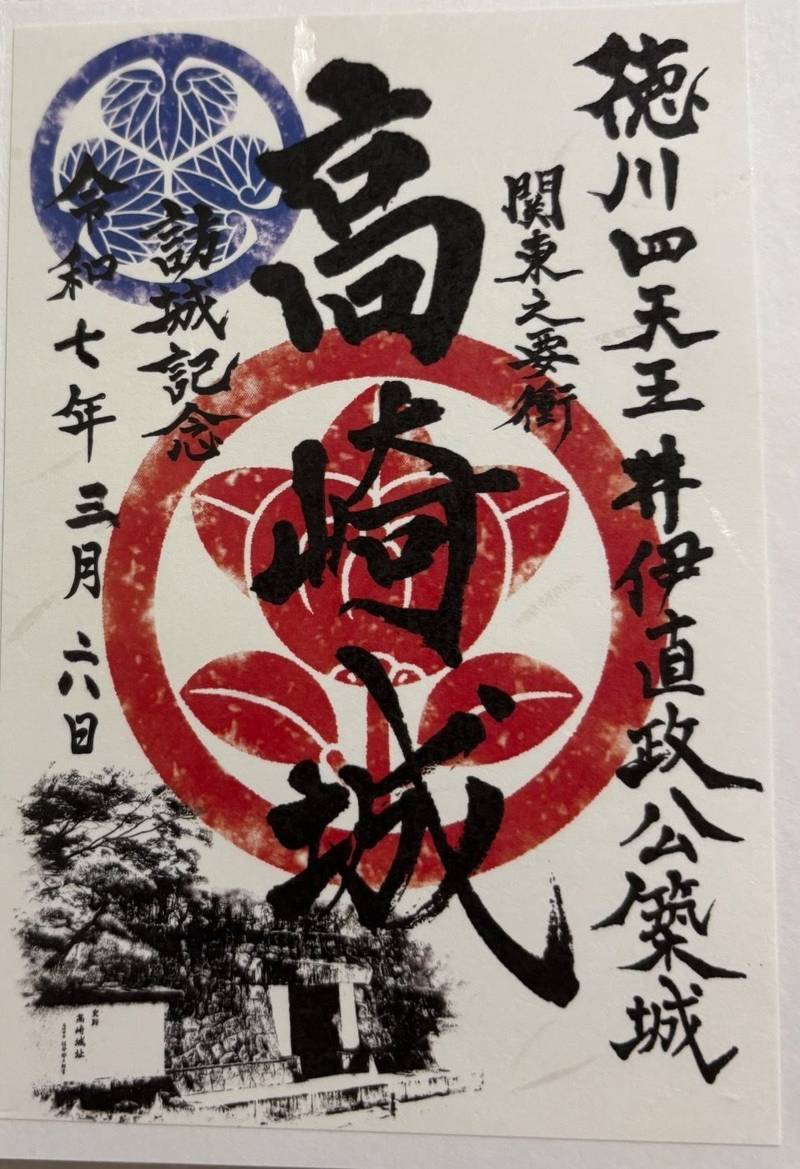 徳川四天王 井伊直政公築城
関東之要衝
高崎城
訪城記念
令和七年三月二八日
史跡
高崎城址